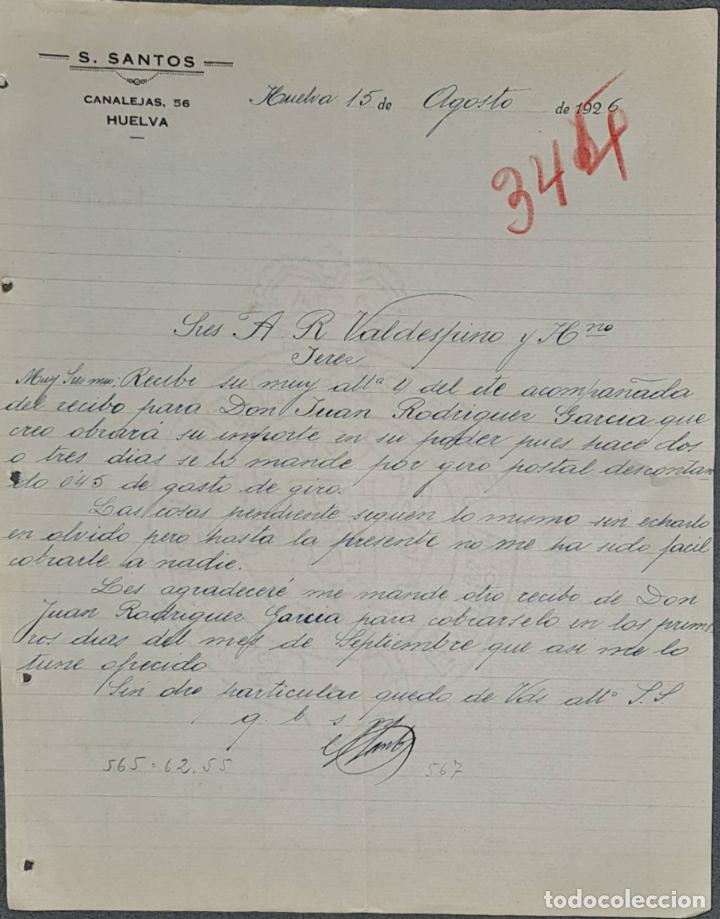 S. SANTOS
CANALEJAS, 56
HUELVA
Huelva 15 de Agosto de 1926
344
Sres A R Valdespino y Hno
Jerez
Muy Sres mio: Recibi su muy attª 4 del cte acompañada
del recibo para Don Juan Rodriguez Garcia que
creo obrará su importe en su poder pues hace dos
o tres dias se lo mande por giro postal descontan
do 0'45 de gasto de giro.
Las cosas pendiente siguen lo mismo sin echarlo
en olvido pero hasta la presente no me ha sido facil
cobrarle a nadie.
Les agradeceré me mande otro recibo de Don
Juan Rodriguez Garcia para cobrarselo en los prime
ros dias del mes de Septiembre que asi me lo
tiene ofrecido
Sin otro particular quedo de Vds attº S.S.
q. b s m
565=62.55
567
todocoleccion.net